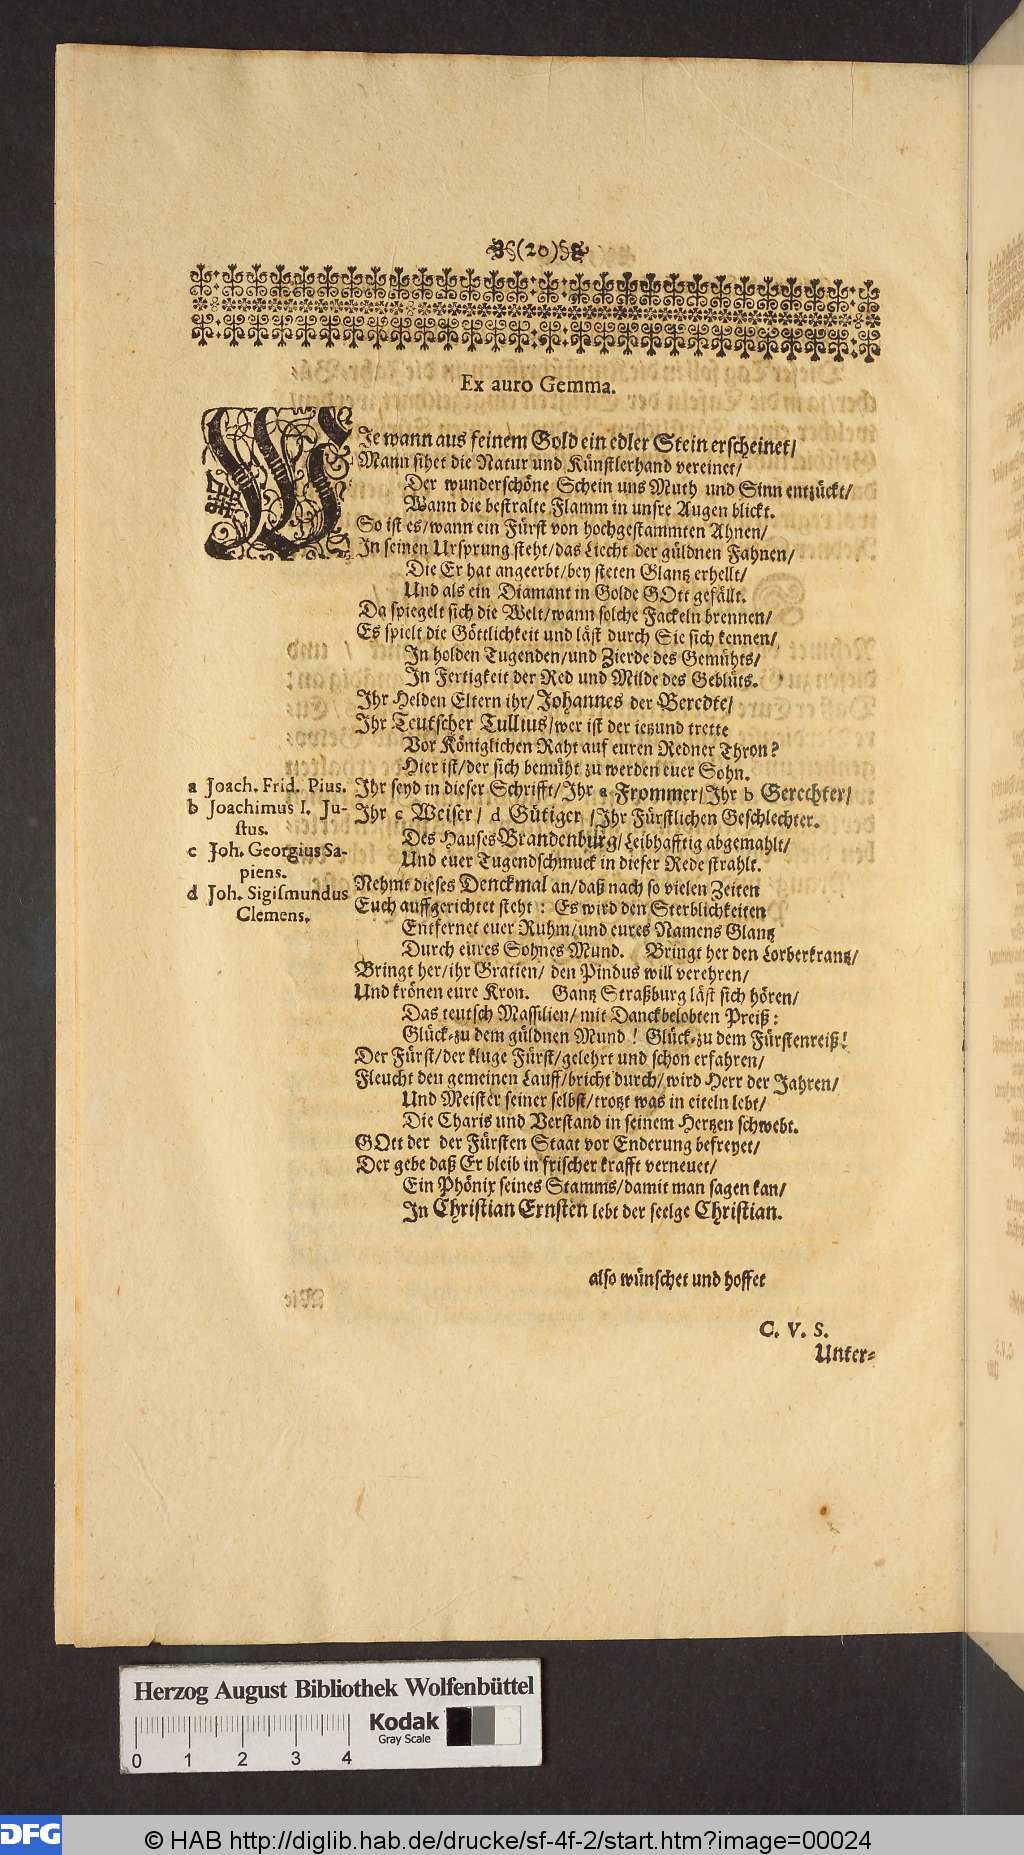 (20)
Ex auro Gemma.
WJe wann aus feinem Gold ein edler Stein erscheinet/
Mann sihet die Natur und Künstlerhand vereinet/
Der wunderschöne Schein uns Muth und Sinn entzückt/
Wann die bestralte Flamm in unsre Augen blickt.
So ist es/wann ein Fürst von hochgestammten Ahnen/
In seinen Ursprung steht/das Liecht der güldnen Fahnen/
Die Er hat angeerbt/bey steten Glantz erhellt/
Und als ein Diamant in Golde GOtt gefällt.
Da spiegelt sich die Welt/wann solche Fackeln brennen/
Es spielt die Göttlichkeit und läst durch Sie sich kennen/
In holden Tugenden/und Zierde des Gemühts/
In Fertigkeit der Red und Milde des Geblüts.
Ihr Helden Eltern ihr/Johannes der Beredte/
Ihr Teutscher Tullius/wer ist der ietzund trette
Vor Königlichen Raht auf euren Redner Thron?
Hier ist/der sich bemüht zu werden euer Sohn.
a Joach. Frid. Pius. Ihr seyd in dieser Schrifft/Ihr a Frommer/Ihr b Gerechter/
b Joachimus I. Ju-
stus. Ihr c Weiser/ d Gütiger /Ihr Fürstlichen Geschlechter.
c Joh. Georgius Sa-
piens. Des Hauses Brandenburg/Leibhafftig abgemahlt/
Und euer Tugendschmuck in dieser Rede strahlt.
d Joh. Sigismundus
Clemens. Nehmt dieses Denckmal an/daß nach so vielen Zeiten
Euch auffgerichtet steht : Es wird den Sterblichkeiten
Entfernet euer Ruhm/und eures Namens Glantz
Durch eures Sohnes Mund. Bringt her den Lorberkrantz/
Bringt her/ihr Gratien/ den Pindus will verehren/
Und krönen eure Kron. Gantz Straßburg läst sich hören/
Das teutsch Massilien/ mit Danckbelobten Preiß:
Glück-zu dem güldnen Mund! Glück-zu dem Fürstenreiß!
Der Fürst/der kluge Fürst/gelehrt und schon erfahren/
Fleucht den gemeinen Lauff/bricht durch/wird Herr der Jahren/
Und Meister seiner selbst/trotzt was in eiteln lebt/
Die Charis und Verstand in seinem Hertzen schwebt.
GOtt der der Fürsten Staat vor Enderung befreyet/
Der gebe daß Er bleib in frischer krafft verneuet/
Ein Phönix seines Stamms/damit man sagen kan/
In Christian Ernsten lebt der seelge Christian.
also wünschet und hoffet
C. V. S.
Unter-
Herzog August Bibliothek Wolfenbüttel
Kodak
Gray Scale
0 1 2 3 4
DFG
© HAB http://diglib.hab.de/drucke/sf-4f-2/start.htm?image=00024